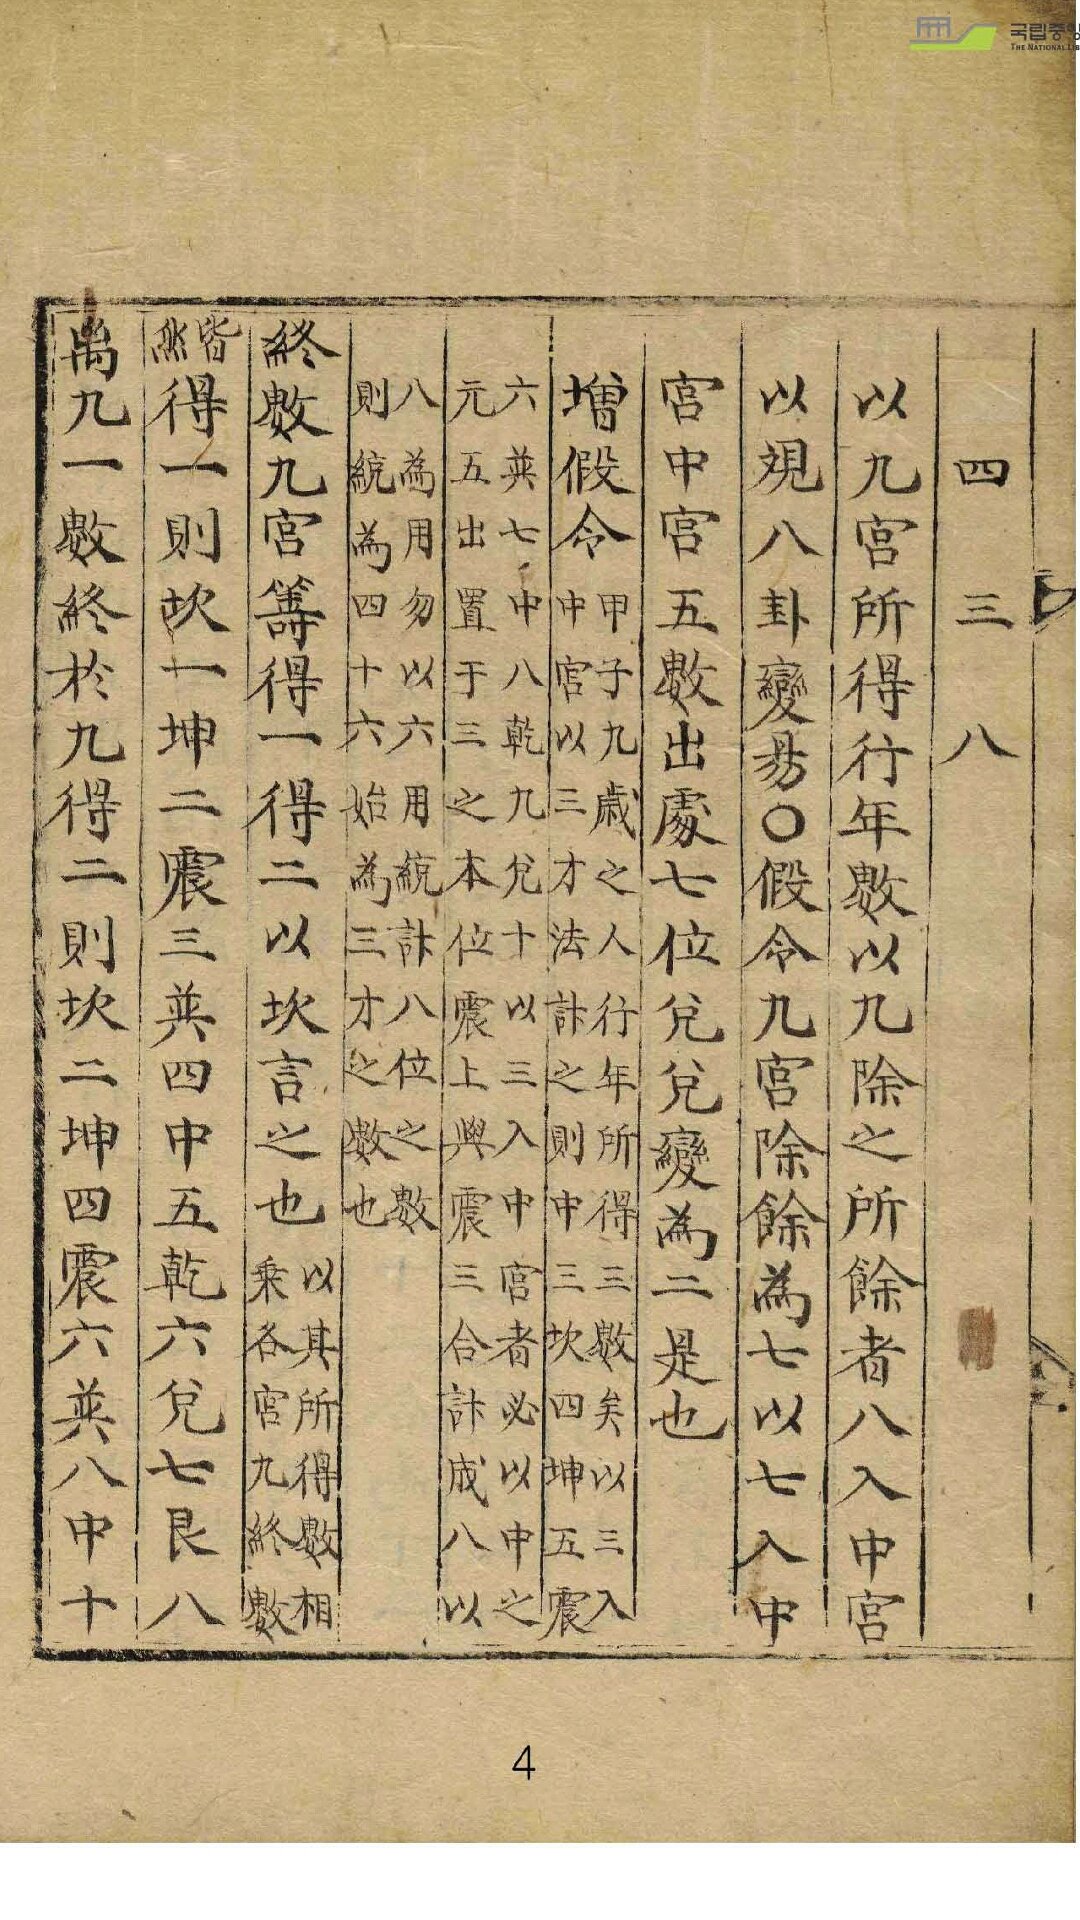 四三八
以九宮所得行年數以九除之所餘者八入中宮
以䂓八卦變易〇假令九宮除餘爲七以七入中
宮中宮五數出處七位兌兌變爲二是也
增假令甲子九歲之人行年所得三數矣以三入
中宮以三才法計之則中三坎四坤五震
六巽七中八乾九兌十以三入中宮者必以中之
元五出置于三之本位震上與震三合計成八以
八爲用勿以六用統計八位之數
則統爲四十六始爲三才之數也
終數九宮籌得一得二以坎言之也以其所得數相
乘各宮九終數
皆然得一則坎一坤二震三巽四中五乾六兌七艮八
离九一數終於九得二則坎二坤四震六巽八中十
4
국립중앙
THE NATIONAL LIB